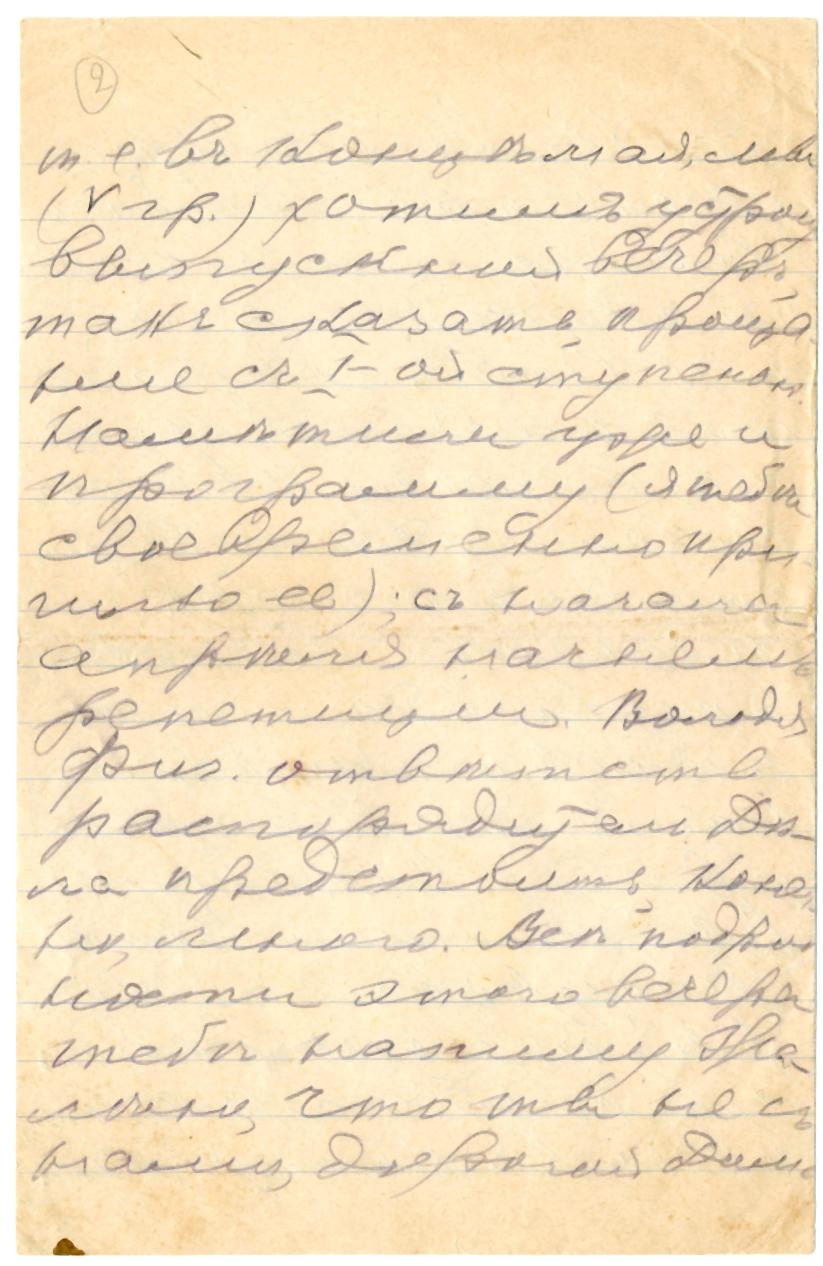 2
т. е. въ концѣ мая, мы
(V гр.) хотимъ устрои
выпускной вечеръ,
такъ сказать проща
ніе съ I-ой ступенью.
Намѣтили уже и
программу (я тебѣ
своевременно при-
шлю ее); съ начала
апрѣля начнемъ
репетиціи. Володя
Физ. отвѣтств
распорядител Дѣ-
ла предстоитъ, конеч
но, много. Всѣ подроб
ности этого вечера
тебѣ напишу Жа-
лѣю, что ты не съ
нами, дорогой Дима